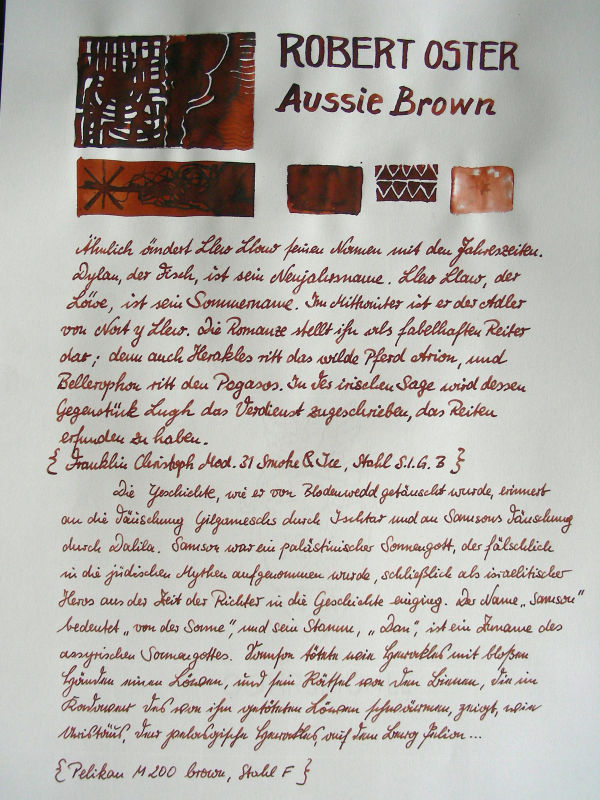 ROBERT OSTER
Aussie Brown
Ähnlich ändert Llew Llaw seinen Namen mit den Jahreszeiten.
Dylan, der Fisch, ist sein Neujahrsname. Llew Llaw, der
Löwe, ist sein Sommername. Im Mittwinter ist er der Adler
von Nort y Llew. Die Romanze stellt ihn als fabelhaften Reiter
dar; denn auch Herakles ritt das wilde Pferd Arion, und
Bellerophon ritt den Pegasos. In der irischen Sage wird dessen
Gegenstück Lugh das Verdienst zugeschrieben, das Reiten
erfunden zu haben.
{ Franklin Christoph Mod. 31 Smoke & Ice, Stahl S.I.G. B }
Die Geschichte, wie er von Blodenwedd getäuscht wurde, erinnert
an die Täuschung Gilgameschs durch Ischtar und an Samsons Täuschung
durch Dalila. Samson war ein palästinischer Sonnengott, der fälschlich
in die jüdischen Mythen aufgenommen wurde, schließlich als israelitischer
Heros aus der Zeit der Richter in die Geschichte einging. Der Name „Samson"
bedeutet „von der Sonne", und sein Stamm, „Dan", ist ein Zuname des
assyrischen Sonnengottes. Samson tötete wie Herakles mit bloßen
Händen einen Löwen, und sein Rätsel von den Bienen, die im
Kadaver des von ihm getöteten Löwen schwärmen, zeigt, wie
Aristäus, der pelasgische Herakles, auf dem Berg Pelion...
{ Pelikan M 200 brown, Stahl F }